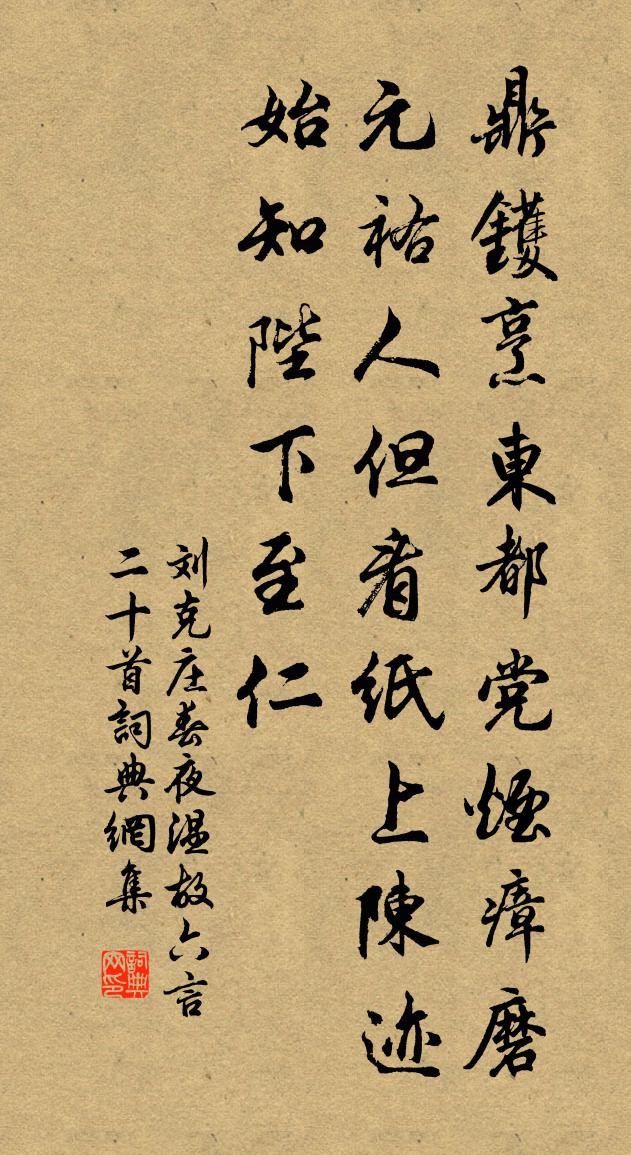 鼎鑊烹東都党煙瘴磨
元祐人但看紙上陳迹
始知陛下至仁
刘克庄春夜温故六言
二十首詞典網集
詞典網印